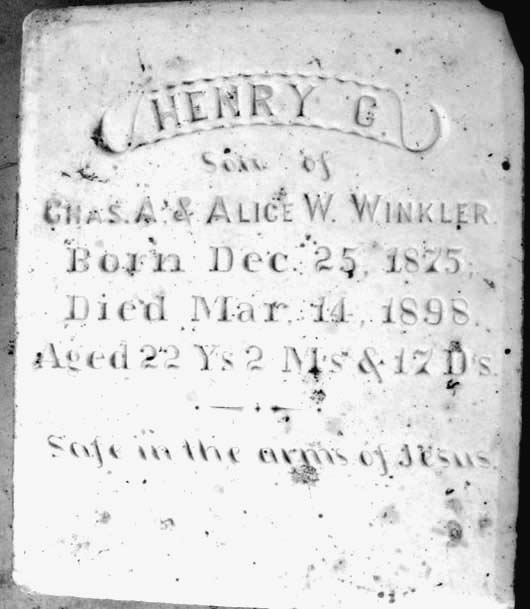 HENRY C.
Son of
CHAS. A. & ALICE W. WINKLER.
Born Dec. 25, 1875,
Died Mar. 14, 1898.
Aged 22 Ys 2 Ms & 17 Ds.
Safe in the arms of Jesus.